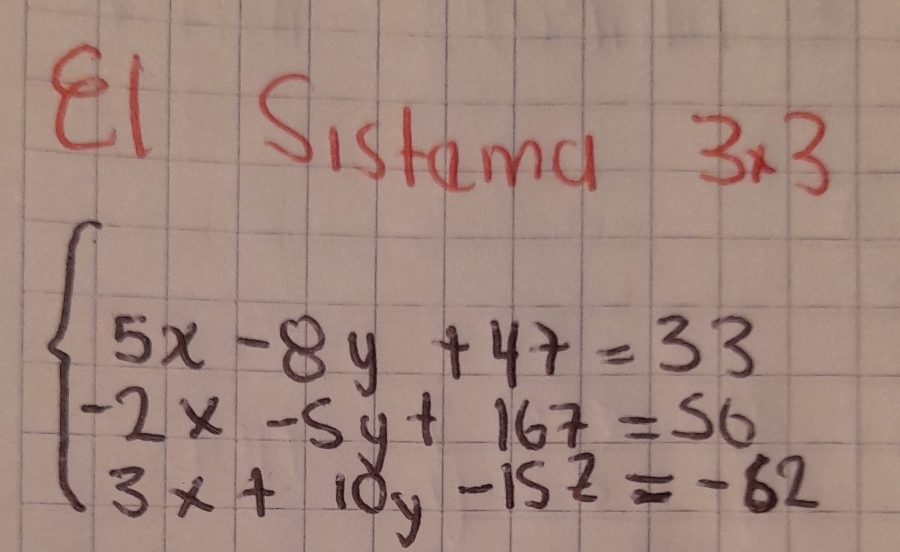 El Sistema 3x3
5x -8y +4z = 33
-2x -5y + 16z = 56
3x + 10y -15z = -62